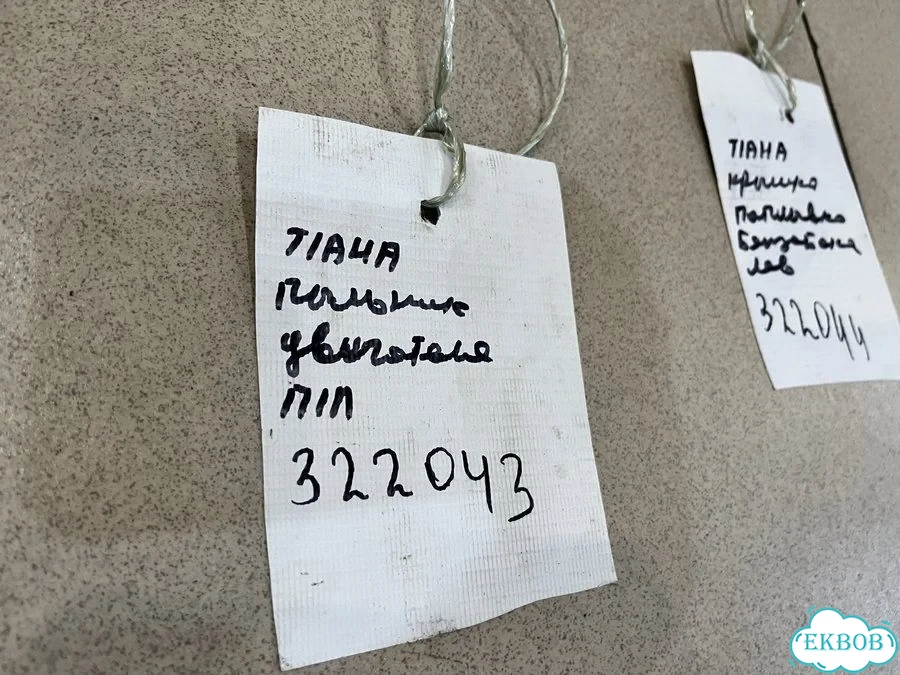 ТІАНА
Пыльник
двигателя
П/П
322043
ТІАНА
крышка
Поплавка
Бензобака
лев
322044
EKBOB